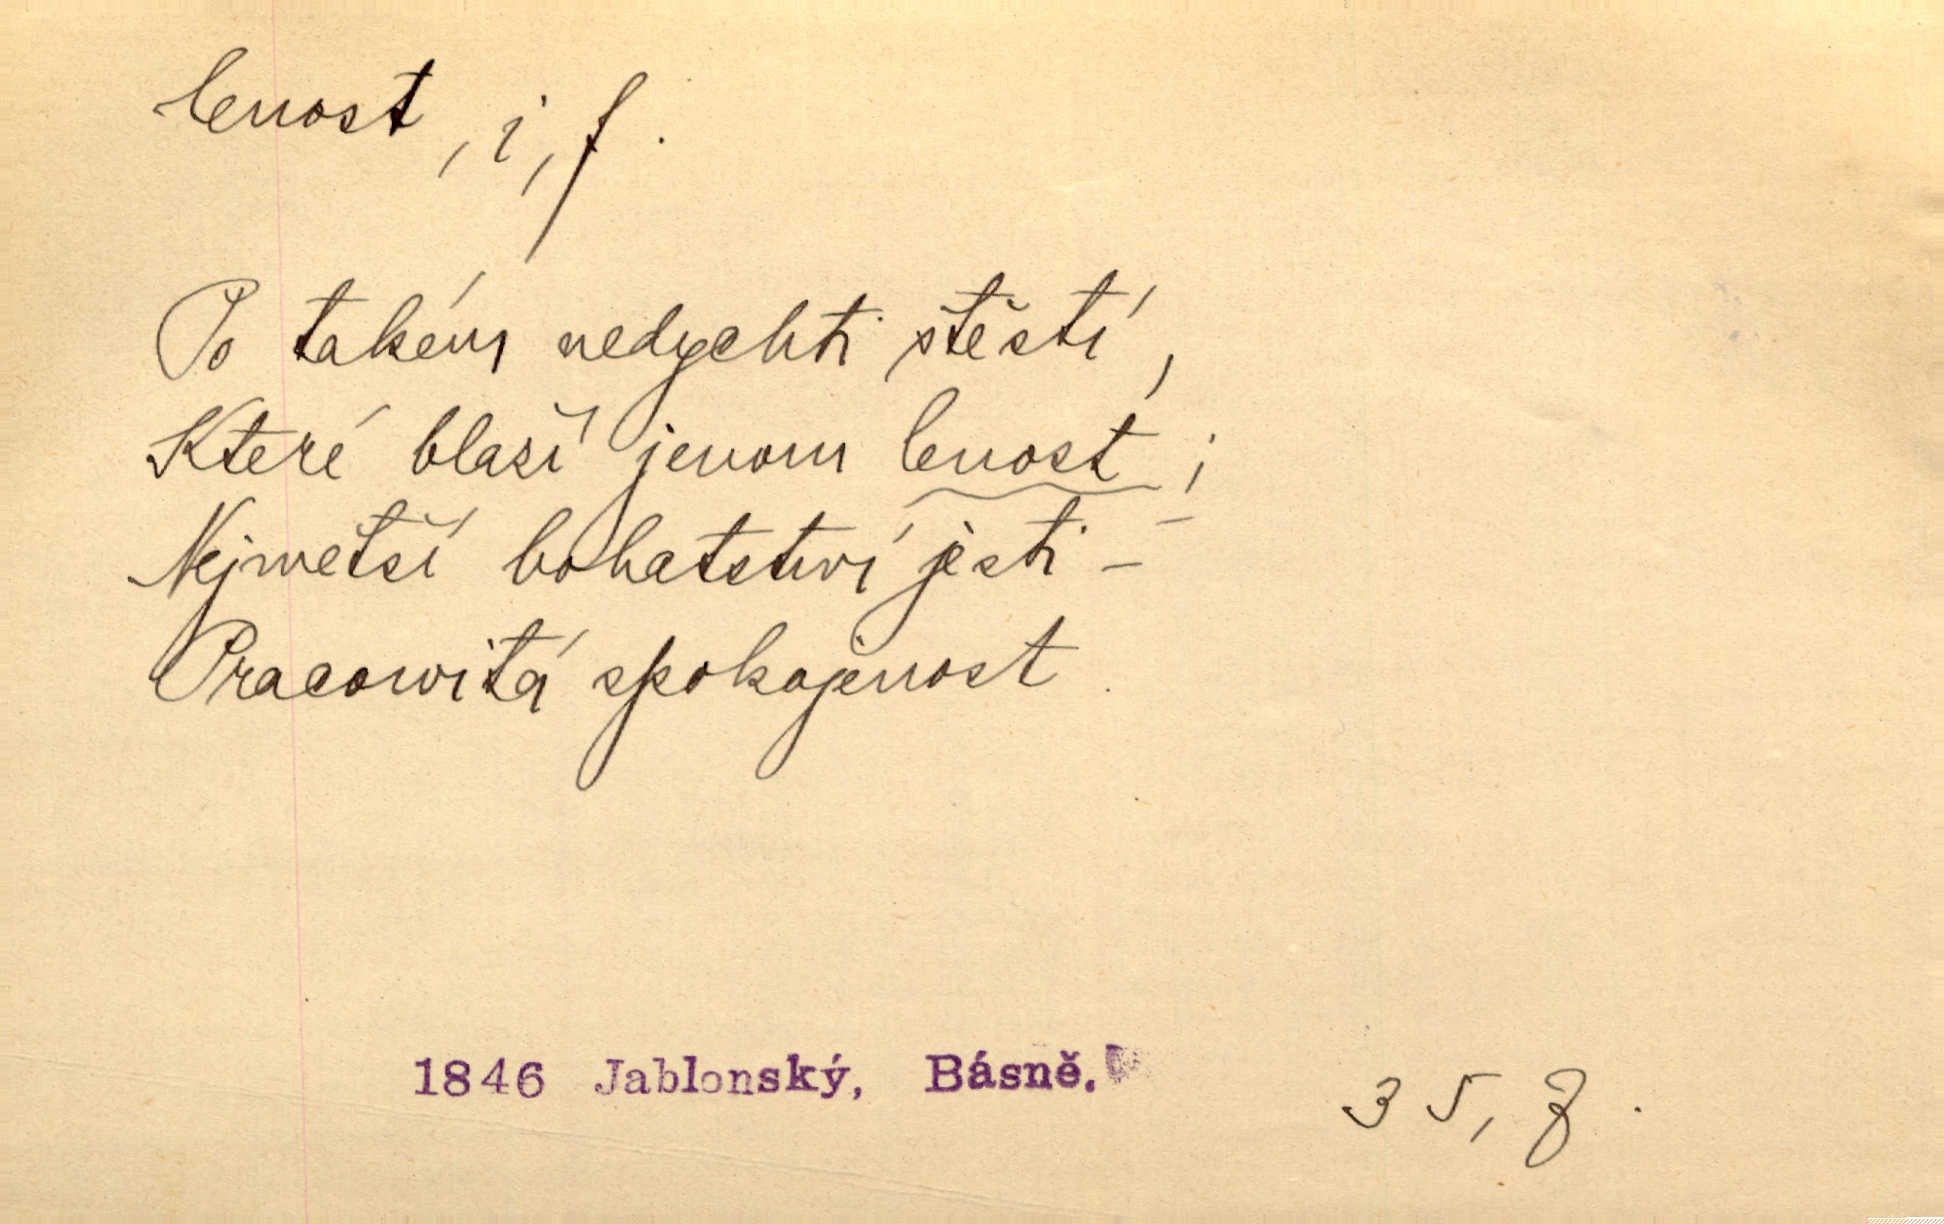 lenost, i, f.
Po takém nedychti štěstí,
Které blaží jenom lenost;
Nejwětší bohatstwí jesti –
Pracowitá spokojenost.
1846 Jablonský, Básně.
35, 8.